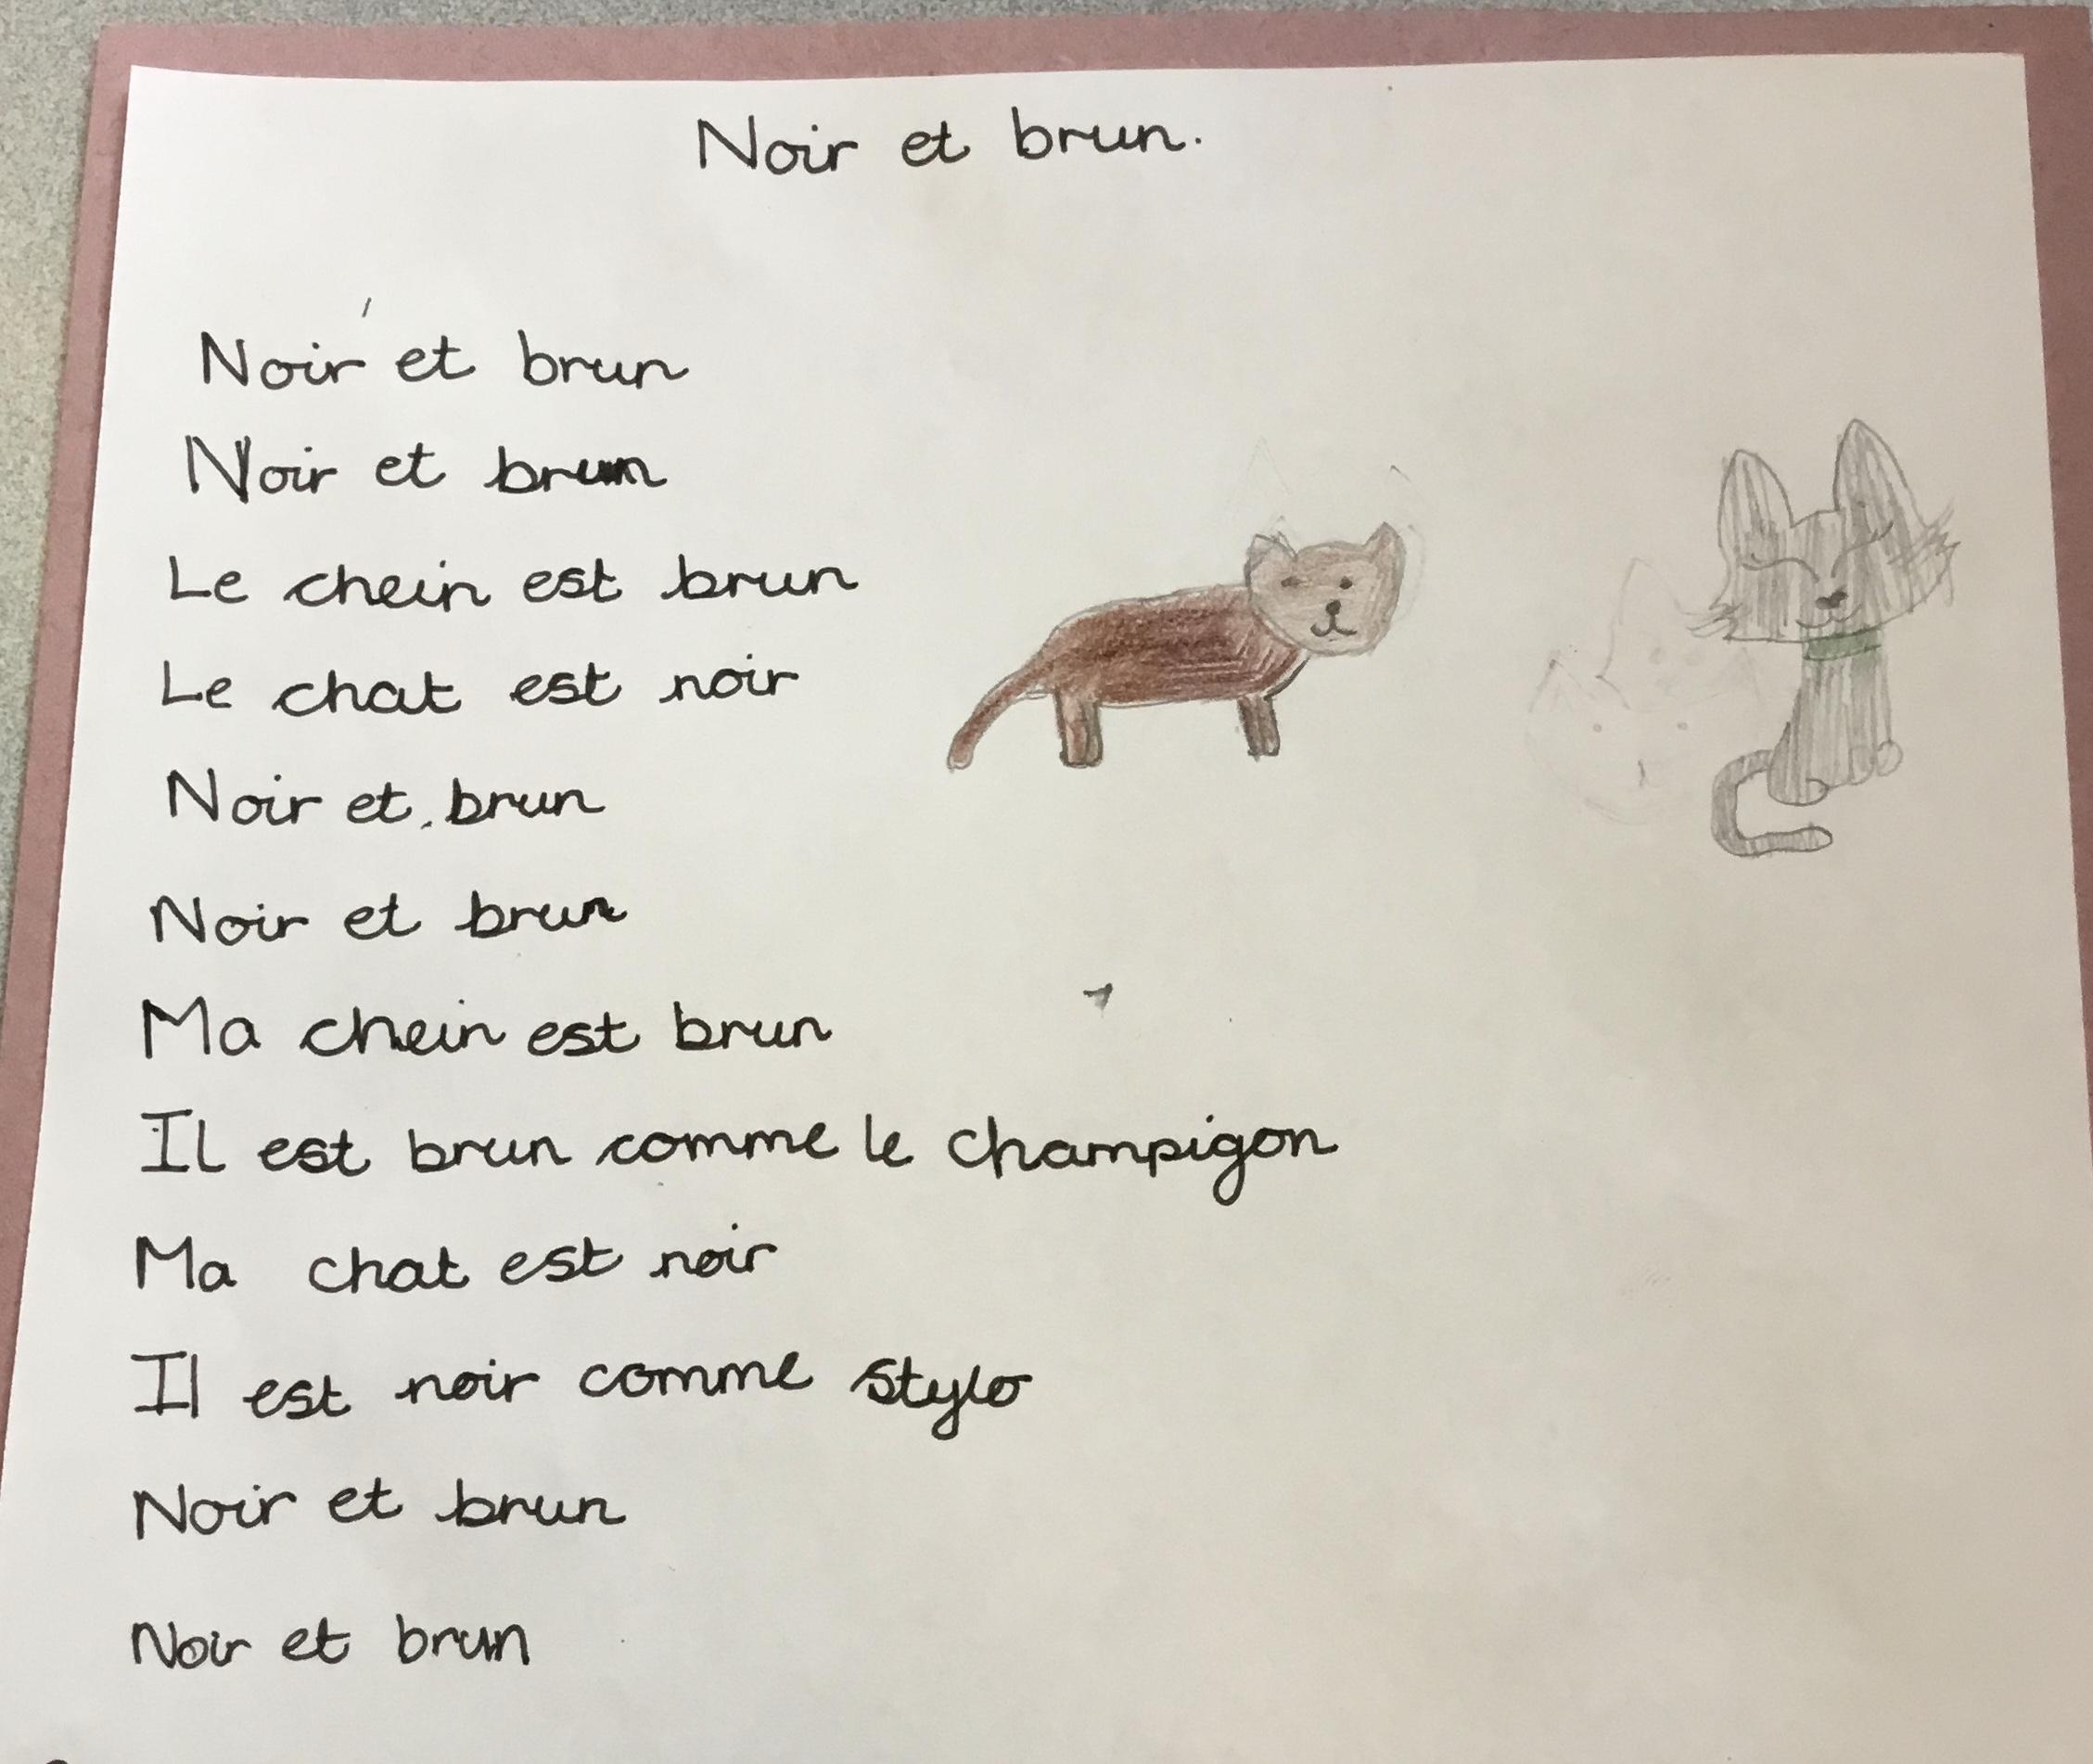 Noir et brun.
Noir et brun
Noir et brun
Le chein est brun
Le chat est noir
Noir et brun
Noir et brun
Ma chein est brun
Il est brun comme le champigon
Ma chat est noir
Il est noir comme stylo
Noir et brun
Noir et brun